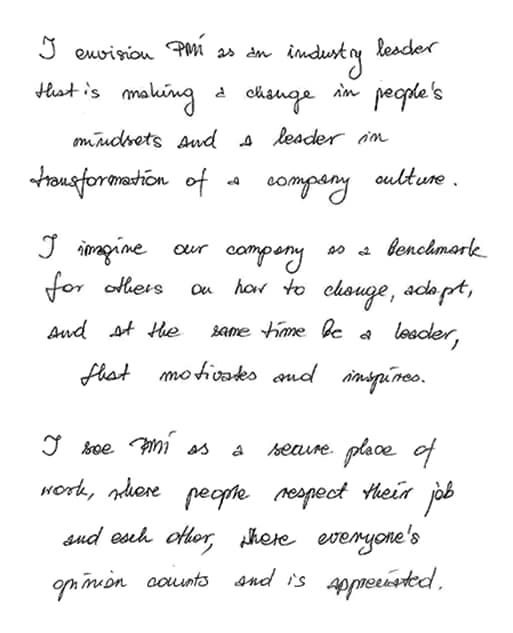 I envision PMI as an industry leader
that is making a change in people's
mindsets and a leader in
transformation of a company culture.
I imagine our company as a Benchmark
for others on how to change, adapt,
and at the same time be a leader,
that motivates and inspires.
I see PMI as a secure place of
work, where people respect their job
and each other, where everyone's
opinion counts and is appreciated.